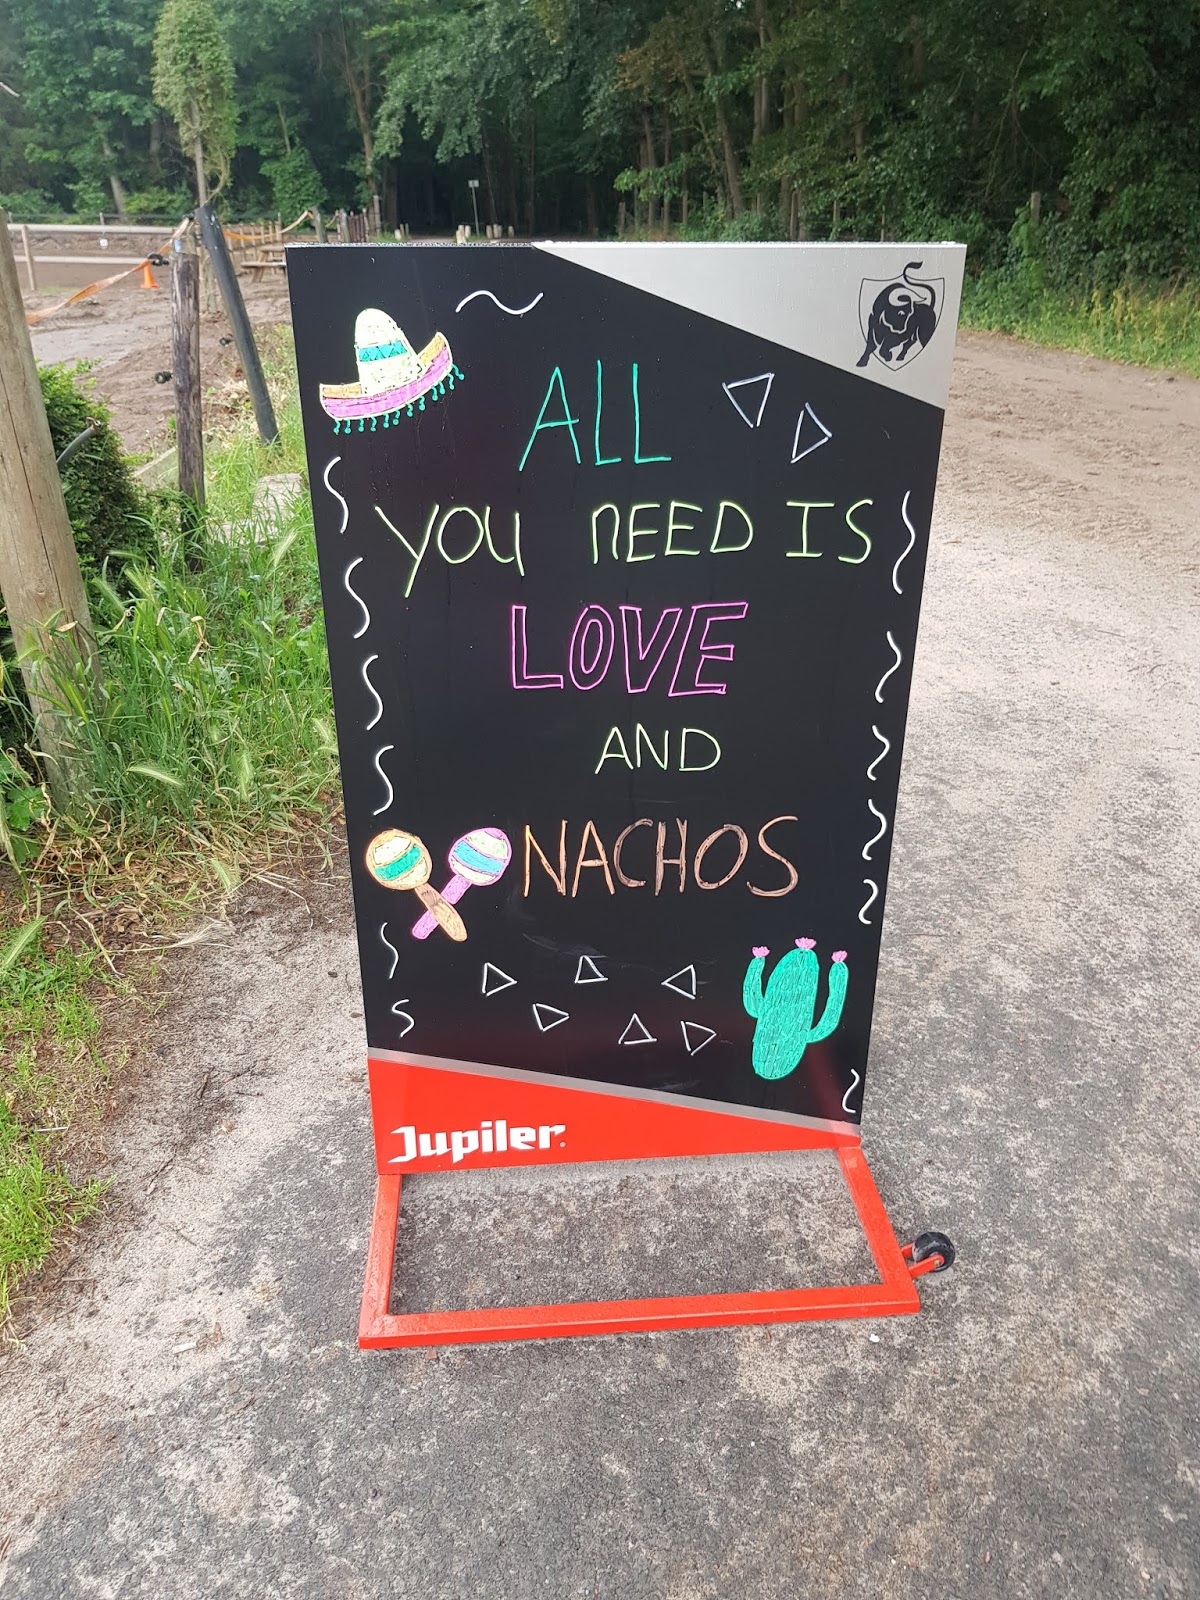 ALL
YOU NEED IS
LOVE
AND
NACHOS
Jupiler